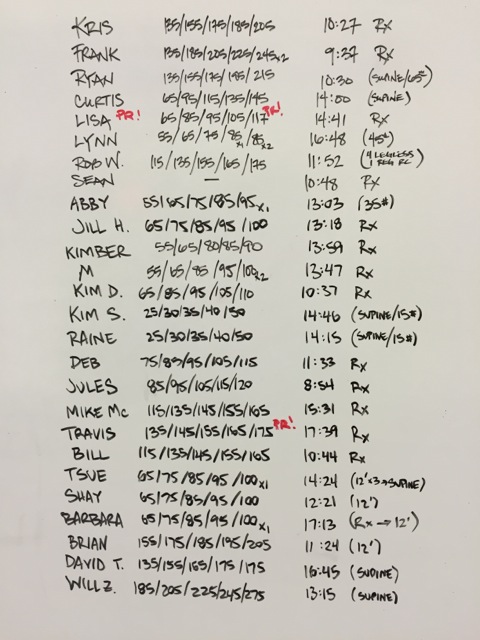 KRIS 135/155/175/185/205 10:27 Rx
FRANK 135/185/205/225/245x2 9:37 Rx
RYAN 135/155/175/195/215 10:30 (SUPINE/65#)
CURTIS 65/95/115/135/145 14:00 (SUPINE)
LISA PR! 65/85/95/105/117 PR! 14:41 Rx
LYNN 55/65/75/85x1/85x2 16:48 (45#)
ROB W. 115/135/155/165/175 11:52 (4 LEGLESS 1 REG RC)
SEAN — 10:48 Rx
ABBY 55/65/75/85/95x1 13:03 (35#)
JILL H. 65/75/85/95/100 13:18 Rx
KIMBER 55/65/80/85/90 13:59 Rx
M 55/65/85/95/100x2 13:47 Rx
KIM D. 65/85/95/105/110 10:37 Rx
KIM S. 25/30/35/40/50 14:46 (SUPINE/15#)
RAINE 25/30/35/40/50 14:15 (SUPINE/15#)
DEB 75/85/95/105/115 11:33 Rx
JULES 85/95/105/115/120 8:54 Rx
MIKE Mc 115/135/145/155/165 15:31 Rx
TRAVIS 135/145/155/165/175 PR! 17:39 Rx
BILL 115/135/145/155/165 10:44 Rx
TSUE 65/75/85/95/100x1 14:24 (12'x3→SUPINE)
SHAY 65/75/85/95/100 12:21 (12')
BARBARA 65/75/85/95/100x1 17:13 (Rx → 12')
BRIAN 155/175/185/195/205 11:24 (12')
DAVID T. 135/155/165/175/175 16:45 (SUPINE)
WILL Z. 185/205/225/245/275 13:15 (SUPINE)